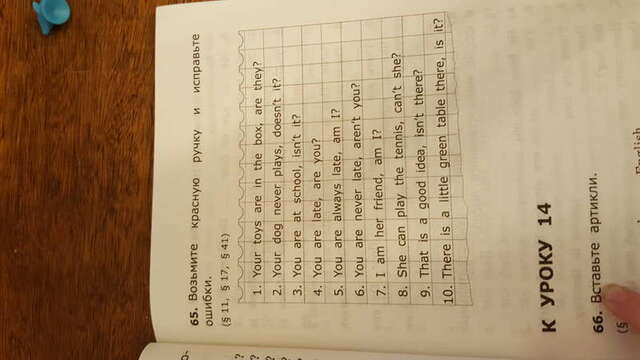 65. Возьмите красную ручку и исправьте
ошибки.
(§ 11, § 17, § 41)
1. Your toys are in the box, are they?
2. Your dog never plays, doesn't it?
3. You are at school, isn't it?
4. You are late, are you?
5. You are always late, am I?
6. You are never late, aren't you?
7. I am her friend, am I?
8. She can play the tennis, can't she?
9. That is a good idea, isn't there?
10. There is a little green table there, is it?
К УРОКУ 14
66. Вставьте артикли.
(§
English